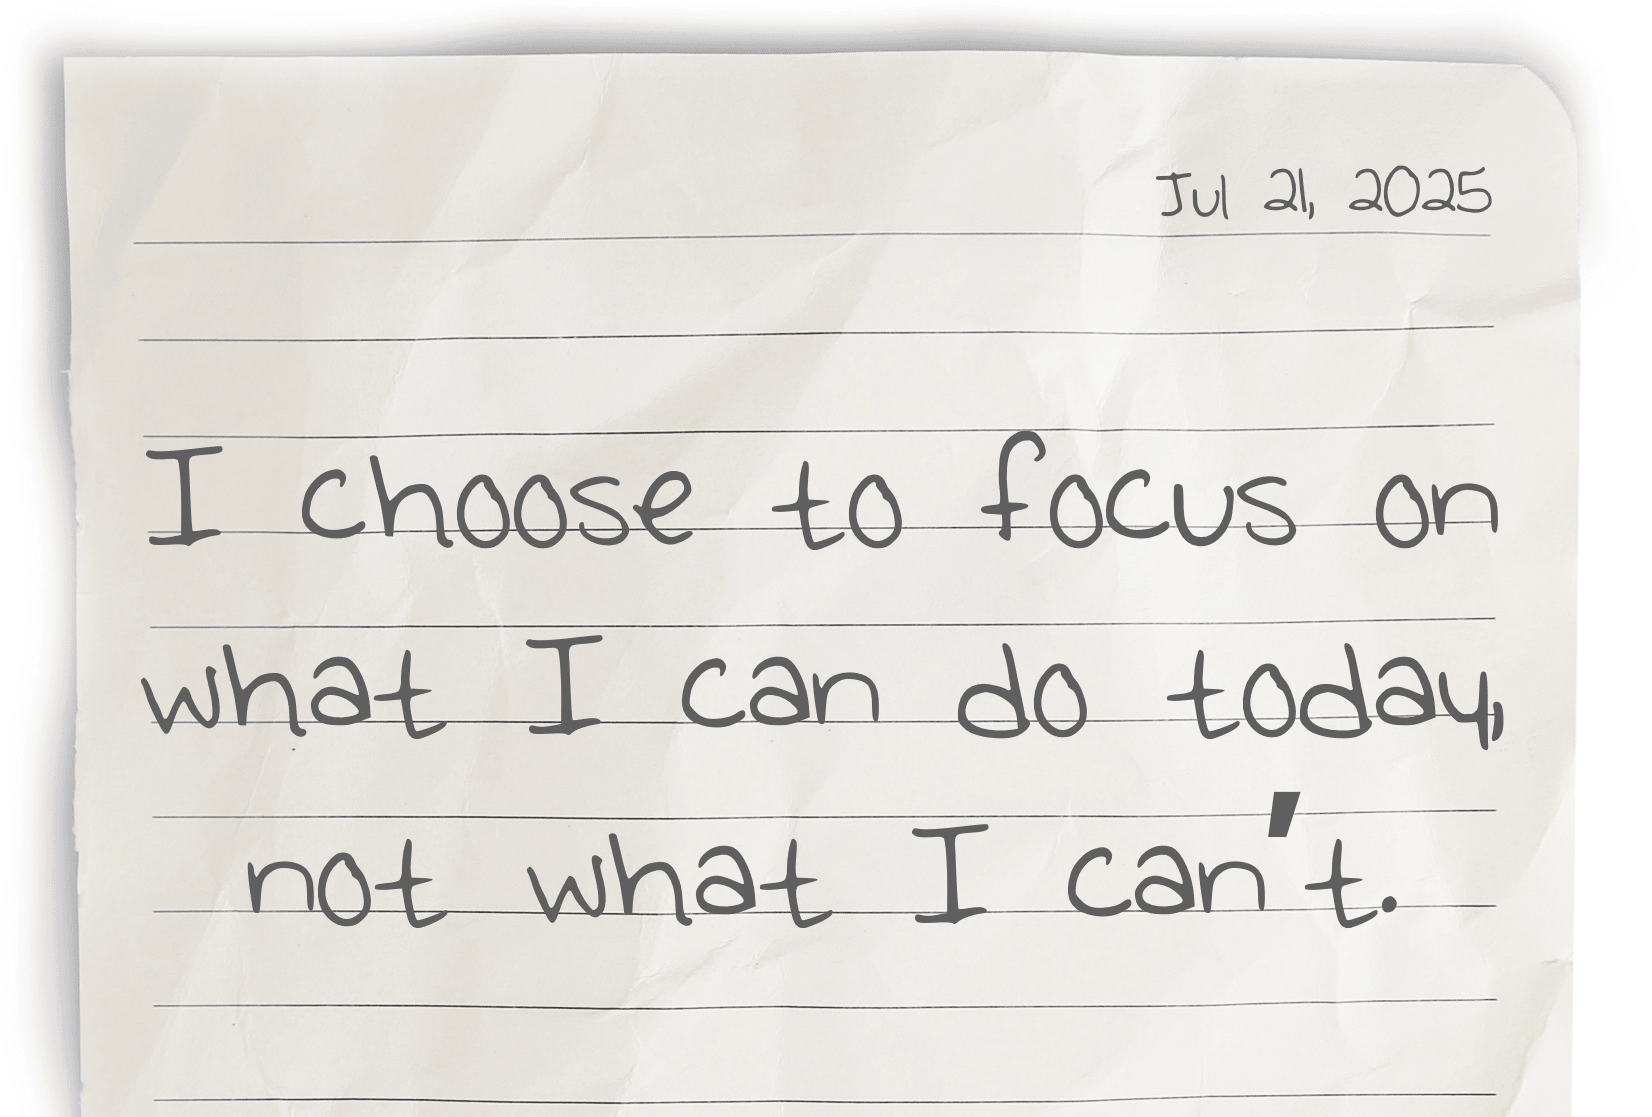 Jul 21, 2025
I choose to focus on
what I can do today,
not what I can't.